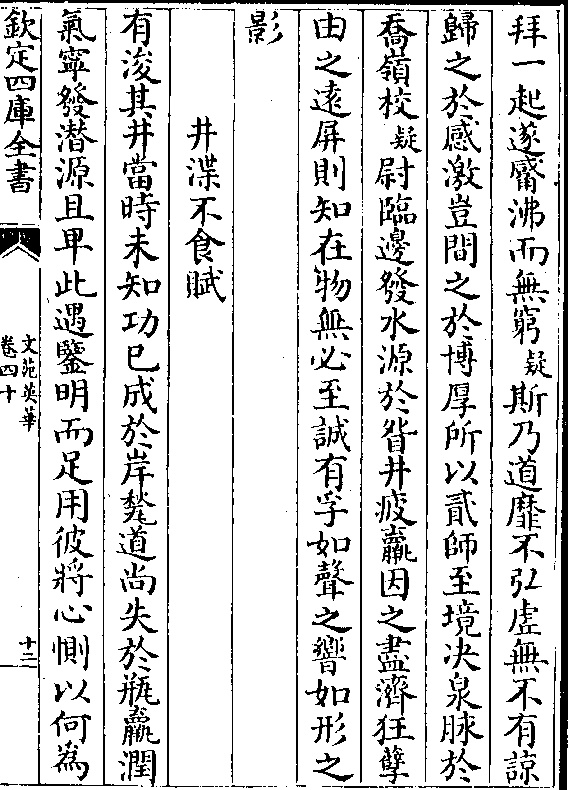 拜一起遂觱沸而無窮疑斯乃道靡不弘虚無不有諒
歸之於感激豈間之於博厚所以貳師至境决泉脉於
喬嶺校疑尉臨邊發水源於眢井疲羸因之盡濟狂孽
由之遠屏則知在物無必至誠有孚如聲之響如形之
影
井渫不食賦
有浚其井當時未知功已成於岸甃道尚失於瓶羸潤
氣寜發潛源且卑此遇鑒明而足用彼將心惻以何為
欽定四庫全書
文苑英華
卷四十
十二